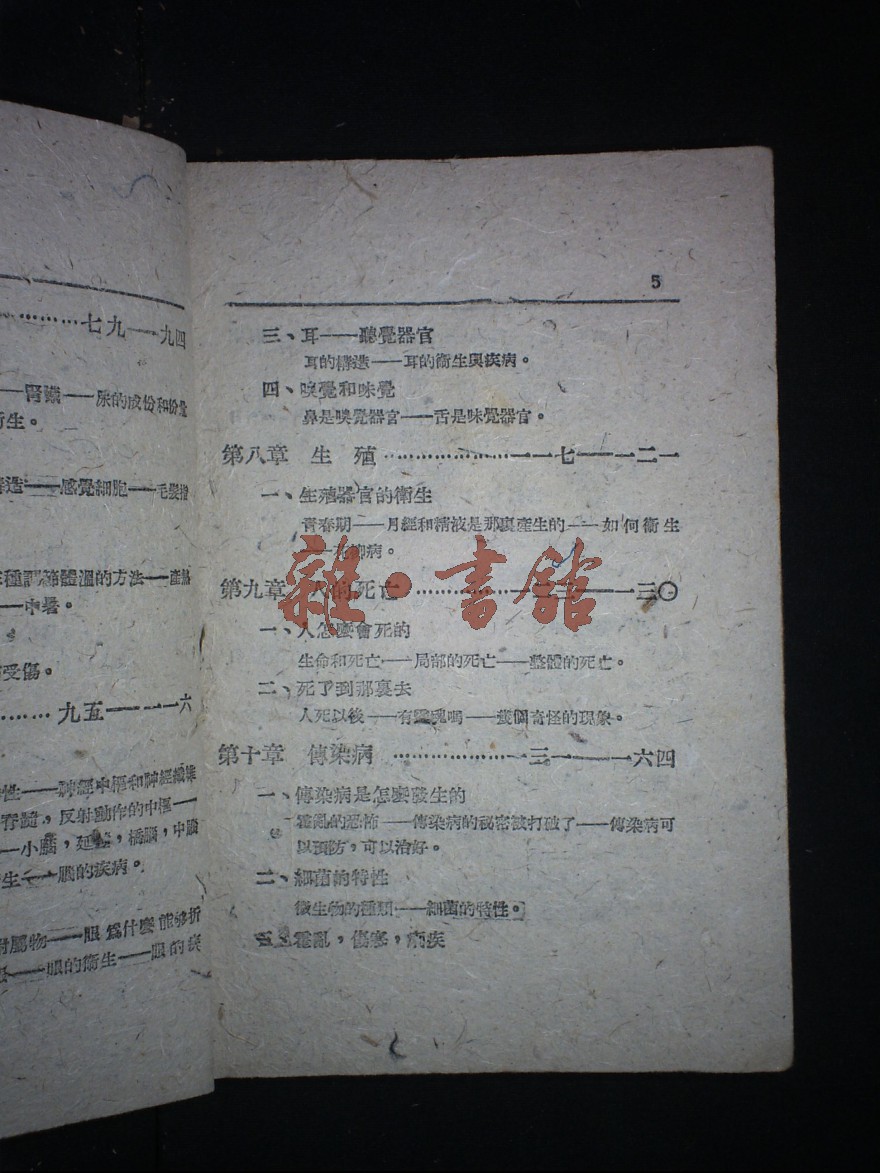 七九——九四
——腎臟——尿的成份和份量
衛生。
構造——感覺細胞——毛髮
種調節體溫的方法——產熱
——中暑。
受傷。
九五——一一六
性——神經中樞和神經纖維
脊髓，反射動作的中樞——
——小腦，延髓，橋腦，中腦
生——腦的疾病。
附屬物——眼爲什麽能够折
——眼的衛生——眼的疾
5
三、耳——聽覺器官
耳的構造——耳的衛生與疾病。
四、嗅覺和味覺
鼻是嗅覺器官——舌是味覺器官。
第八章 生 殖 ………………一一七——一二一
一、生殖器官的衛生
青春期——月經和精液是那裏產生的——如何衛生
——花柳病。
第九章 人的死亡 ………………一二二——一三〇
一、人怎麽會死的
生命和死亡——局部的死亡——整體的死亡。
二、死了到那裏去
人死以後——有靈魂嗎——幾個奇怪的現象。
第十章 傳染病 ………………一三一——一六四
一、傳染病是怎麽發生的
霍亂的恐怖——傳染病的祕密被打破了——傳染病可
以預防，可以治好。
二、細菌的特性
微生物的種類——細菌的特性。
三、霍亂，傷寒，痢疾
雜·書館